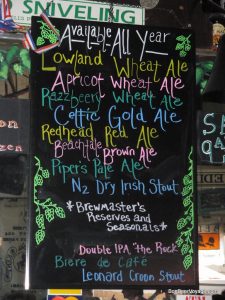 SNIVELING
Available - All Year
Lowland Wheat Ale
Apricot Wheat Ale
Razzberry Wheat Ale
Celtic Gold Ale
Redhead Red Ale
Beachtale Brown Ale
Piper's Pale Ale
N2 Dry Irish Stout
* Brewmaster's
Reserves and
Seasonals *
Double IPA "The Rock"
Biere de Café
Leonard Croon Stout